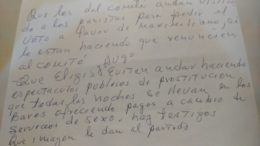 Que los del comité andan visitando
a los panistas para pedir el
voto a favor de
lo están haciendo que renuncien
al comité. Aug°
Que Eligis eviten andar haciendo
espectaculos publicos de prostitucion
que todas las noches se llevan en los
Bares ofreciendo pagos a cambio de
servicios de sexo, hay testigos
que imagen le dan al partido